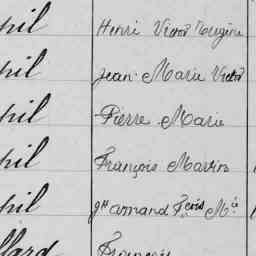 phil Henri Victor Eugène
phil Jean Marie Victor
phil Pierre Marie
phil François Martin
phil Armand Fcois Mie
llard François